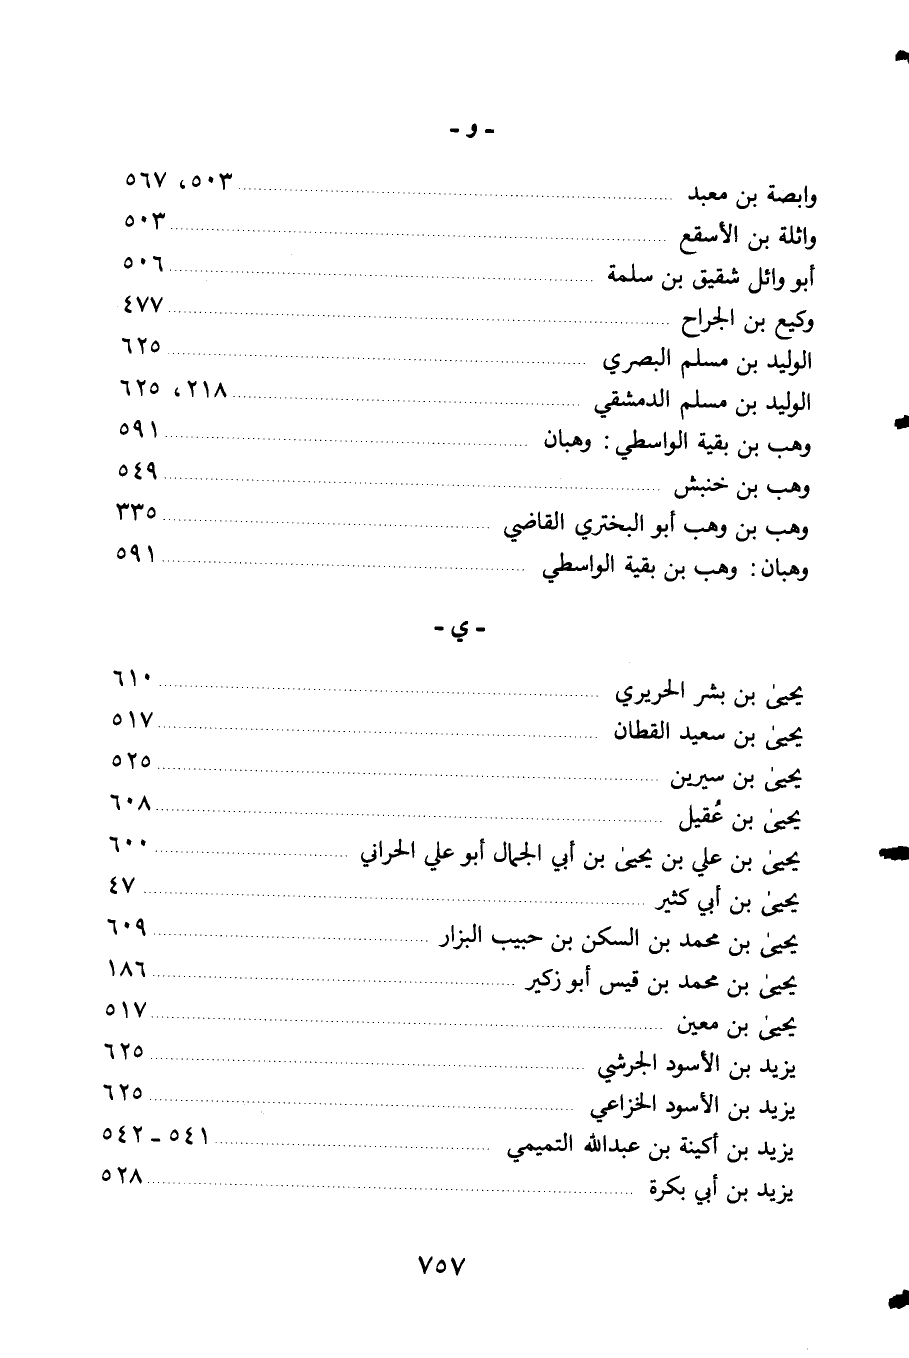 - و -
وابصة بن معبد ٥٠٣، ٥٦٧
واثلة بن الأسقع ٥٠٣
أبو وائل شقيق بن سلمة ٥٠٦
وكيع بن الجراح ٤٧٧
الوليد بن مسلم البصري ٦٢٥
الوليد بن مسلم الدمشقي ٢١٨، ٦٢٥
وهب بن بقية الواسطي: وهبان ٥٩١
وهب بن خنبش ٥٤٩
وهب بن وهب أبو البختري القاضي ٣٣٥
وهبان: وهب بن بقية الواسطي ٥٩١
- ي -
يحيىٰ بن بشر الحريري ٦١٠
يحيىٰ بن سعيد القطان ٥١٧
يحيىٰ بن سيرين ٥٢٥
يحيىٰ بن عُقيل ٦٠٨
يحيىٰ بن علي بن يحيىٰ بن أبي الجمال أبو علي الحراني ٦٠٠
يحيىٰ بن أبي كثير ٤٧
يحيىٰ بن محمد بن السكن بن حبيب البزار ٦٠٩
يحيىٰ بن محمد بن قيس أبو زكير ١٨٦
يحيىٰ بن معين ٥١٧
يزيد بن الأسود الجرشي ٦٢٥
يزيد بن الأسود الخزاعي ٦٢٥
يزيد بن أكينة بن عبدالله التميمي ٥٤١ - ٥٤٢
يزيد بن أبي بكرة ٥٢٨
٧٥٧